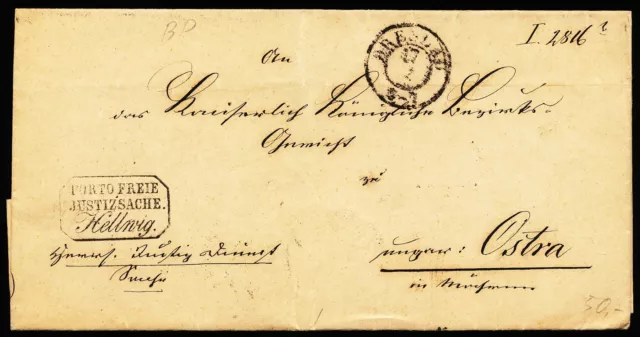 BP
I. 2816
BRESLAU
An
das Kaiserlich Königliche Bezirks-
Gericht
zu
PORTO FREIE
JUSTIZSACHE.
Hellwig.
ungar: Ostra
in Mähren
Herrs. Justiz Dienst
Sache
50,-